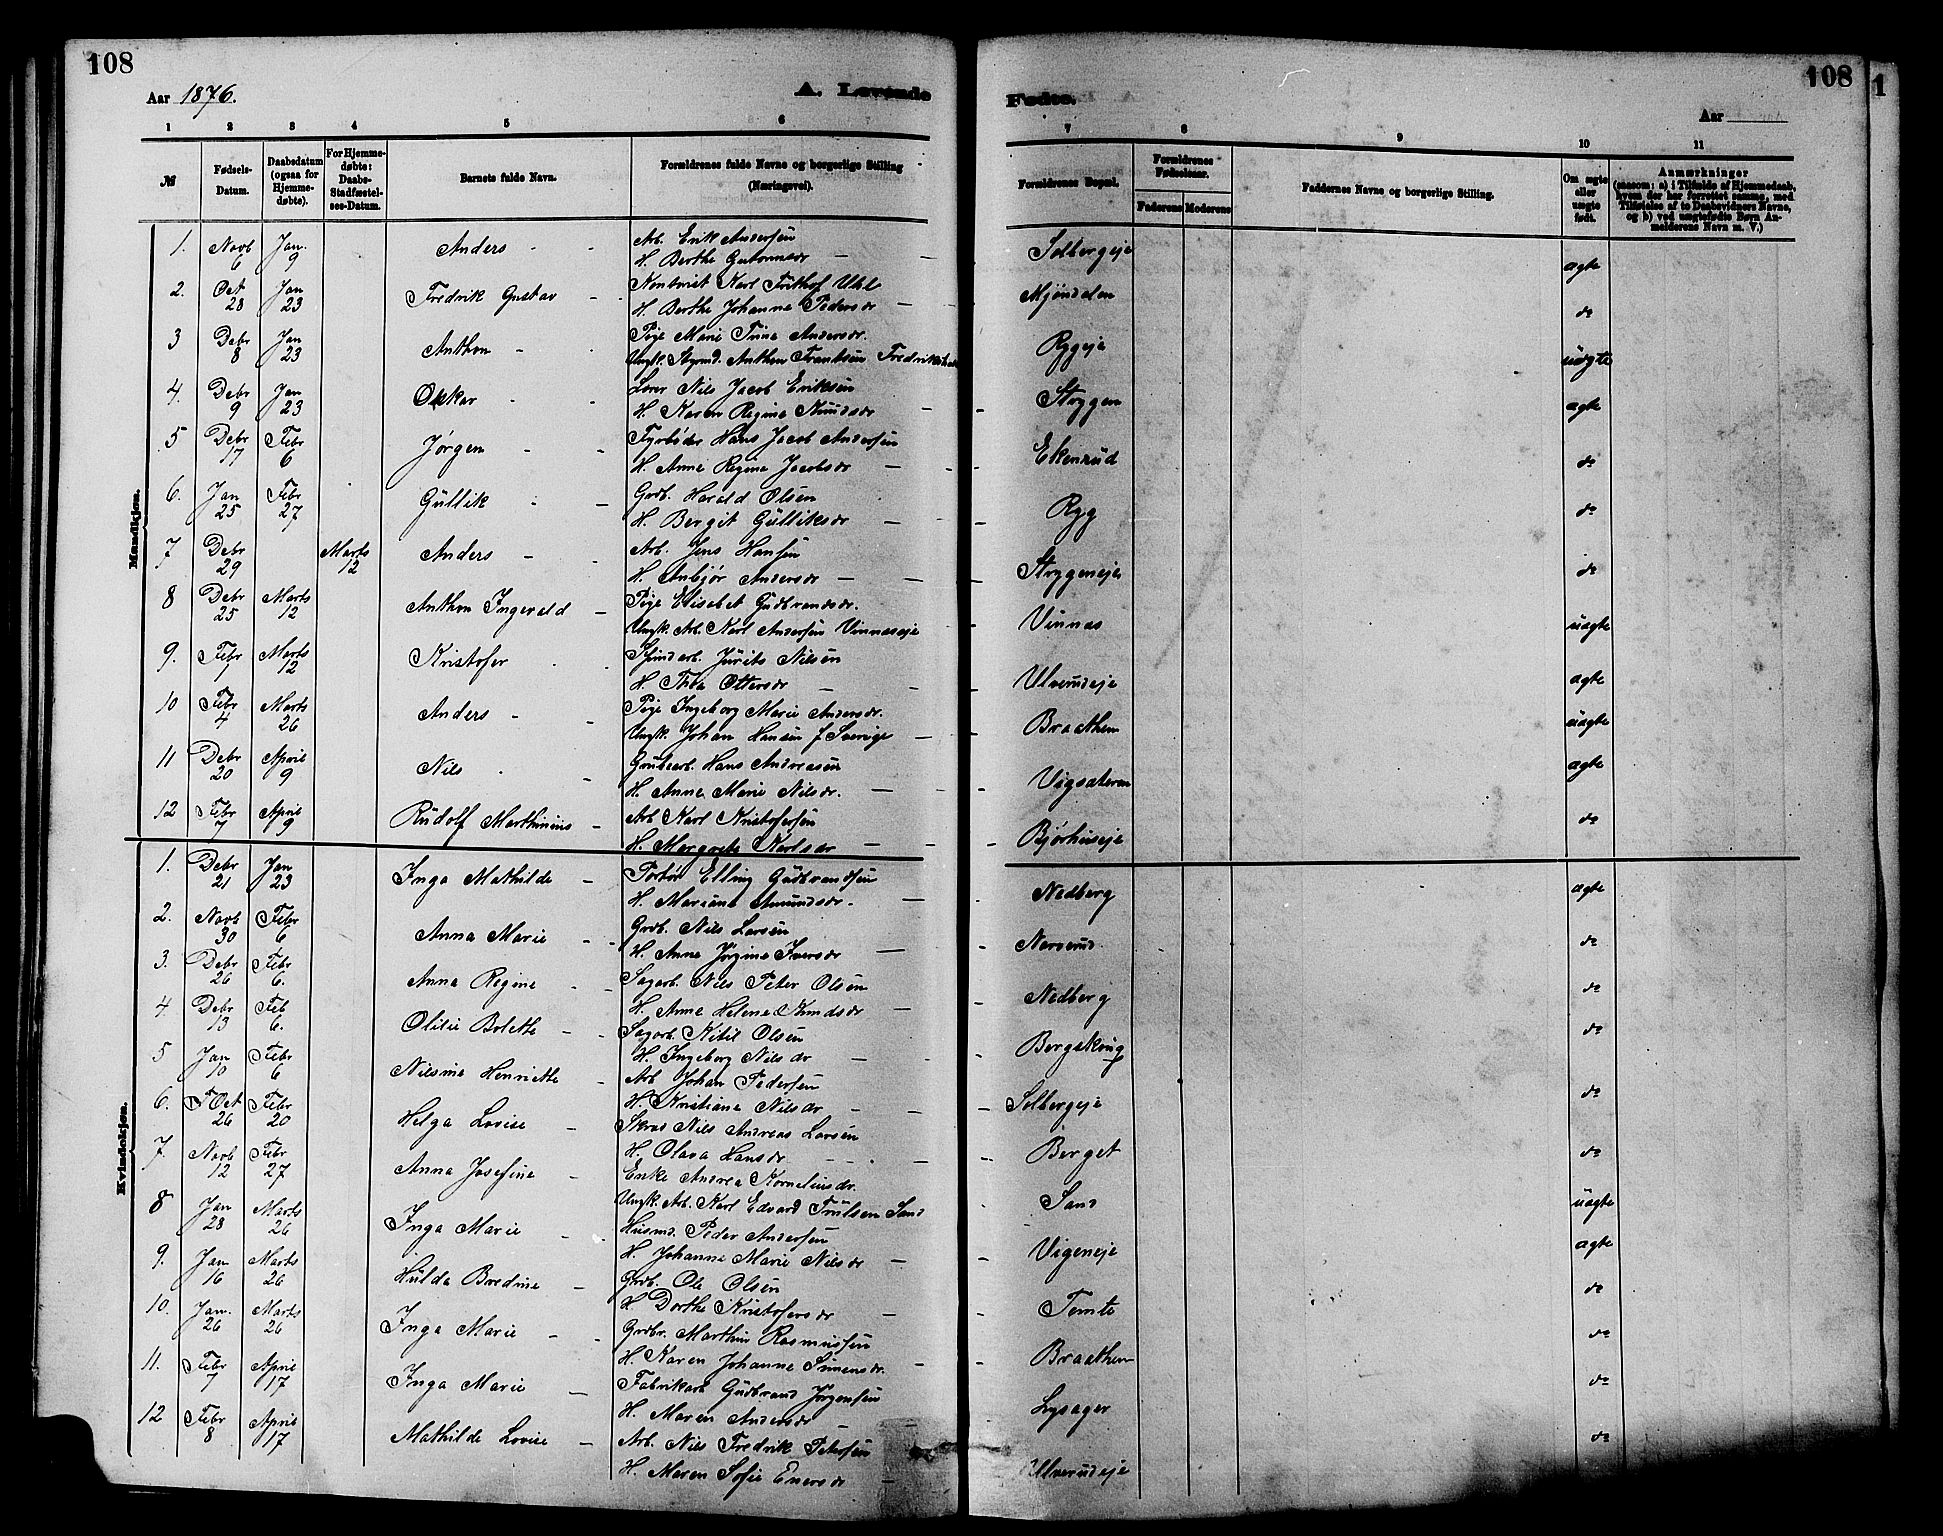 108
Aar 1876.
A. Levende
Fødte.
108
1
Aar
1 2 3 4 5 6 7 8 9 10 11
№
Fødsels-Datum.
Daabsdatum (ogsaa for Hjemme-døbte).
For Hjemme-døbte: Daabs-Stadfæstel-ses-Datum.
Barnets fulde Navn.
Forældrenes fulde Navne og borgerlige Stilling (Næringsvei).
Forældrenes Bopæl.
Forældrenes Fødselsaar.
Faderens Moderens
Faddernes Navne og borgerlige Stilling.
Om ægte eller uægte født.
Anmærkninger
(saasom: a) i Tilfælde af Hjemmedaab, hvem der har forrettet samme, med Tilføielse af to Daabsvidners Navne, og b) ved uægtefødte Børn Anmelderens Navn m. V.)
Mandkjøn.
1. Novb 6 Jan. 9 Anders Arb. Erik Andersen Solbergeje ægte
H. Berthe Guttormsdr
2. Oct 28 Jan 23 Fredrik Gustav Karl Frithof Uhl Mjøndalen do
H. Berthe Johanne Pedersdr
3 Debr 8 Jan 23 Anthon Pige Marie Trine Andersdr. Ryggeje uægte
Ungk. Anthon Frantsen
4. Debr 9 Jan 23 Oskar Nils Jacob Eriksen Strygen ægte
H. Karen Regine Knudsdr
5 Debr 17 Febr 6 Jørgen Fyrbøder Hans Jacob Andersen Ekenrud do
H. Anne Regine Jacobsdr
6. Jan 25 Febr 27 Gullik Grdb. Harald Olsen Ryg do
H. Bergit Gulliksdr
7 Debr 29 Marts 12 Anders Arb. Jens Hansen Strygeneje do
H. Anbjør Andersdr
8 Debr 25 Marts 12 Anthon Ingevald Pige Elisabet Gudbrandsdr. Vinnas uægte
Ungk. Arb. Karl Andersen Vinnaseje
9. Febr 1 Marts 12 Kristofer Nilsen Ulverudeje ægte
H. Thea Ottersdr
10 Febr 4 Marts 26 Anders Pige Ingeborg Marie Andersdr. Braathen uægte
Ungk. Johan Hansen f Sverige
11 Debr 20 April 9 Nils Grubearb. Hans Andreasen ægte
H. Anne Marie Nilsdr.
12 Febr 7 April 9 Rudolf Marthinius Arb Karl Kristofersen Bjørhuseje do
H. Margrete Karlsdr
Kvindekjøn.
1. Debr 21 Jan 23 Inga Mathilde Elling Gudbrandsen Nedberg ægte
H. Mariane Amundsdr.
2. Novb 30 Febr 6 Anna Marie Grdb. Nils Larsen Narverud do
H. Anne Jørgine Iversdr
3. Debr 26 Febr 6. Anna Regine Sagarb. Nils Peter Olsen Nedberg do
H. Anne Helene Knudsdr
4. Debr 13 Feb 6. Olilie Bolette Sagarb. Kitil Olsen Bergskoug do
H. Ingeborg Nilsdr
5 Jan 10 Febr 6 Nilsine Henriette Arb Johan Pedersen Solbergeje do
H. Kristiane Nilsdr
6. Oct 26 Febr 20 Helga Lovise Nils Andreas Larsen Berget do
H. Olava Hansdr
7. Novb 12 Febr 27 Anna Josefine Enke Andrea Kornelinsdr. Sand uægte
Ungk. Arb. Karl Edvard Trulsen Sand
8 Jan 28 Marts 26 Inga Marie Husmd. Peder Andersen Vigeneje ægte
H. Johanne Marie Nilsdr
9. Jan 16 Marts 26 Hulda Bredine Grdb. Ole Olsen Tomte do
H Dorthe Kristofersdr
10. Jan. 26 Marts 26 Inga Marie Grdbr. Marthin Rasmussen Braathen do
H. Karen Johanne Simensdr.
11. Febr 7 April 17 Inga Marie Fabrikarb Gudbrand Jørgensen Lysager do
H. Maren Andersdr
12 Febr 8 April 17 Mathilde Lovise Arb. Nils Fredrik Petersen Ulverudeje do
H. Maren Sofie Enersdr